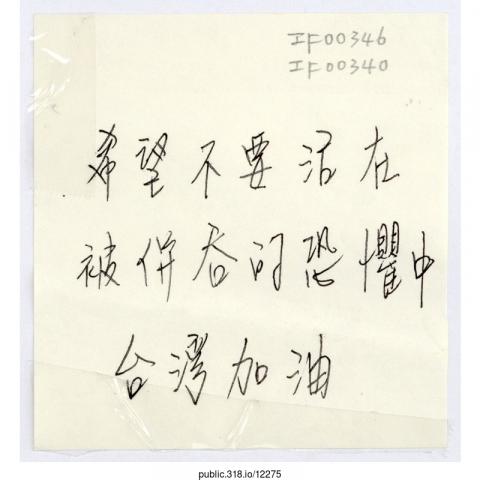 IF00346
IF00340
希望不要活在
被併吞的恐懼中
台灣加油
public.318.io/12275